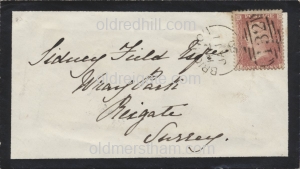 oldredhill.com
Sidney Field Esqre
Wray Park
Reigate
Surrey.
oldmerstham.com